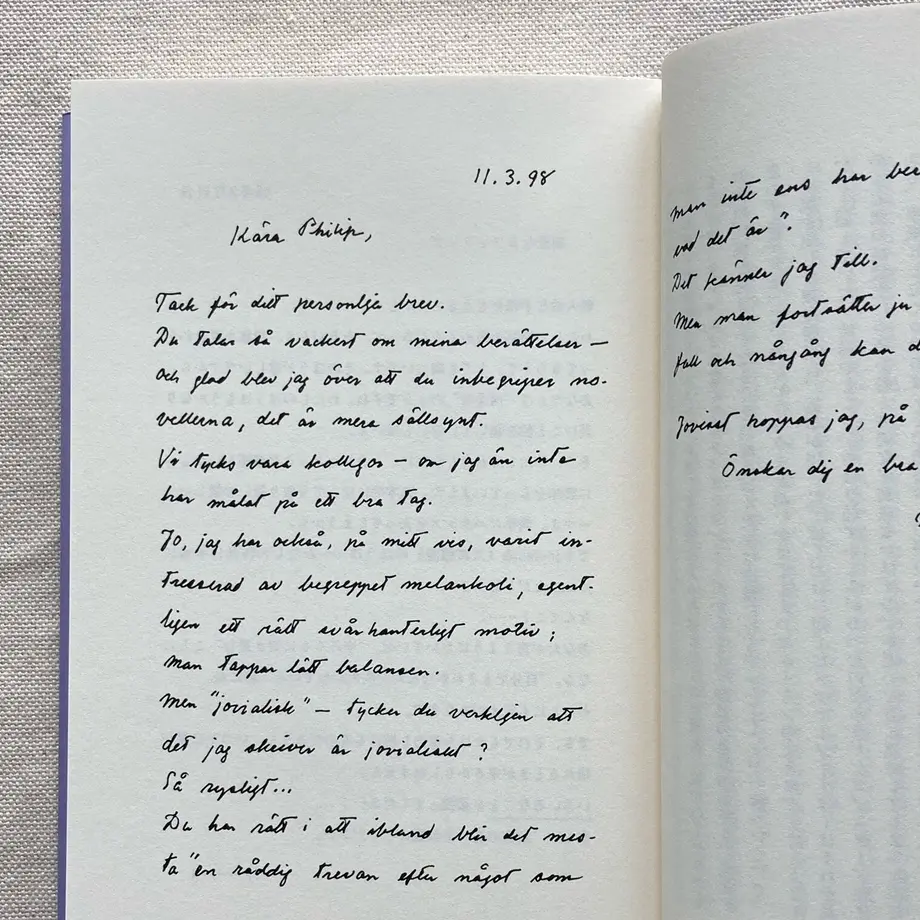 11.3.98
Kära Philip,
Tack för ditt personliga brev.
Du talar så vackert om mina berättelser –
och glad blev jag över att du inbegriper no-
vellerna, det är mera sällsynt.
Vi tycks vara kollegor – om jag än inte
har målat på ett bra tag.
Jo, jag har också, på mitt vis, varit in-
tresserad av begreppet melankoli, egent-
ligen ett rätt svårhanterligt motiv;
man tappar lätt balansen.
Men "jovialisk" – tycker du verkligen att
det jag skriver är jovialiskt?
Så rysligt...
Du har rätt i att ibland blir det mes-
ta "en råddig trevan efter något som
man inte ens har
vad det är".
Det känner jag till.
Men man fortsätter ju
fall och nångång kan
Joviast hoppas jag, på
Önskar dig en bra